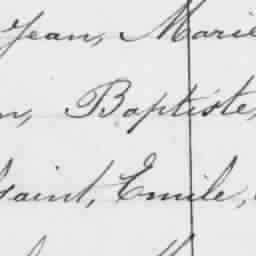 Jean, Marie
n, Baptiste,
saint, Emile,